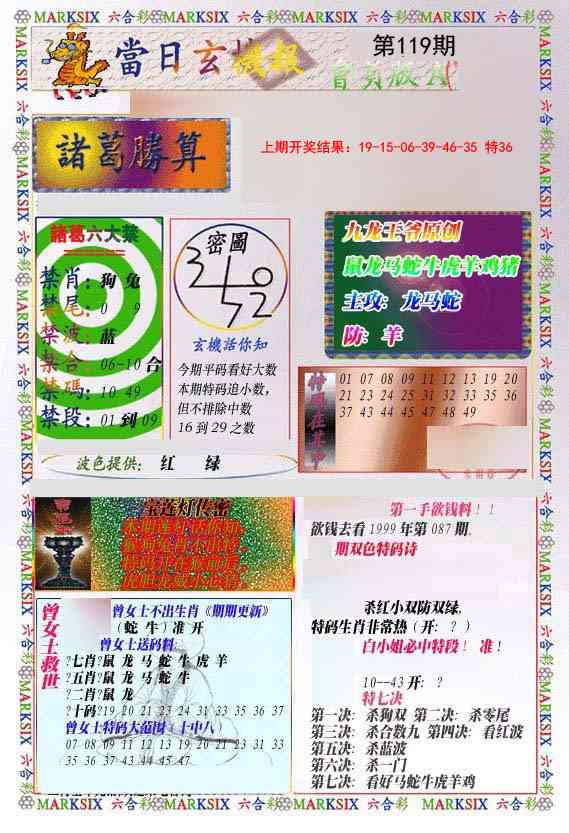 MARKSIX 六合彩 MARKSIX 六合彩 MARKSIX 六合彩 MARKSIX
當日玄機报
第119期
諸葛勝算
上期开奖结果：19-15-06-39-46-35 特36
諸葛六大禁
禁肖：狗 兔
禁尾：0 9
禁波：蓝
禁合：06-10 合
禁碼：10 49
禁段：01 到 09
密圖
玄機話你知
今期平码看好大数
本期特码追小数，
但不排除中数
16 到 29 之数
九龙王爷原创
鼠龙马蛇牛虎羊鸡猪
主攻：龙马蛇
防：羊
01 07 08 09 11 12 13 19 20
21 23 24 25 31 32 33 35 36
37 43 44 45 47 48 49
波色提供： 红 绿
宝莲灯传密
第一手欲钱料！！
欲钱去看 1999 年第 087 期.
期双色特码诗
杀红小双防双绿,
特码生肖非常热（开：？）
白小姐必中特段！ 准！
10--43 开：？
特七决
第一决：杀狗双 第二决：杀零尾
第三决：杀合数九 第四决：看红波
第五决：杀蓝波
第六决：杀一门
第七决：看好马蛇牛虎羊鸡
曾女士救世
曾女士不出生肖《期期更新》
（蛇 牛）准 开
曾女士送码料:
?七肖?鼠 龙 马 蛇 牛 虎 羊
?五肖?鼠 龙 马 蛇 牛
?二肖?鼠 龙
?十码?19 20 21 23 24 31 33 35 36 37
曾女士特码大范围（十中八）
07 08 09 11 12 13 19 20 21 23 31 33
35 36 37 43 44 45 47
MARKSIX 六合彩 MARKSIX 六合彩 MARKSIX 六合彩 MARKSIX